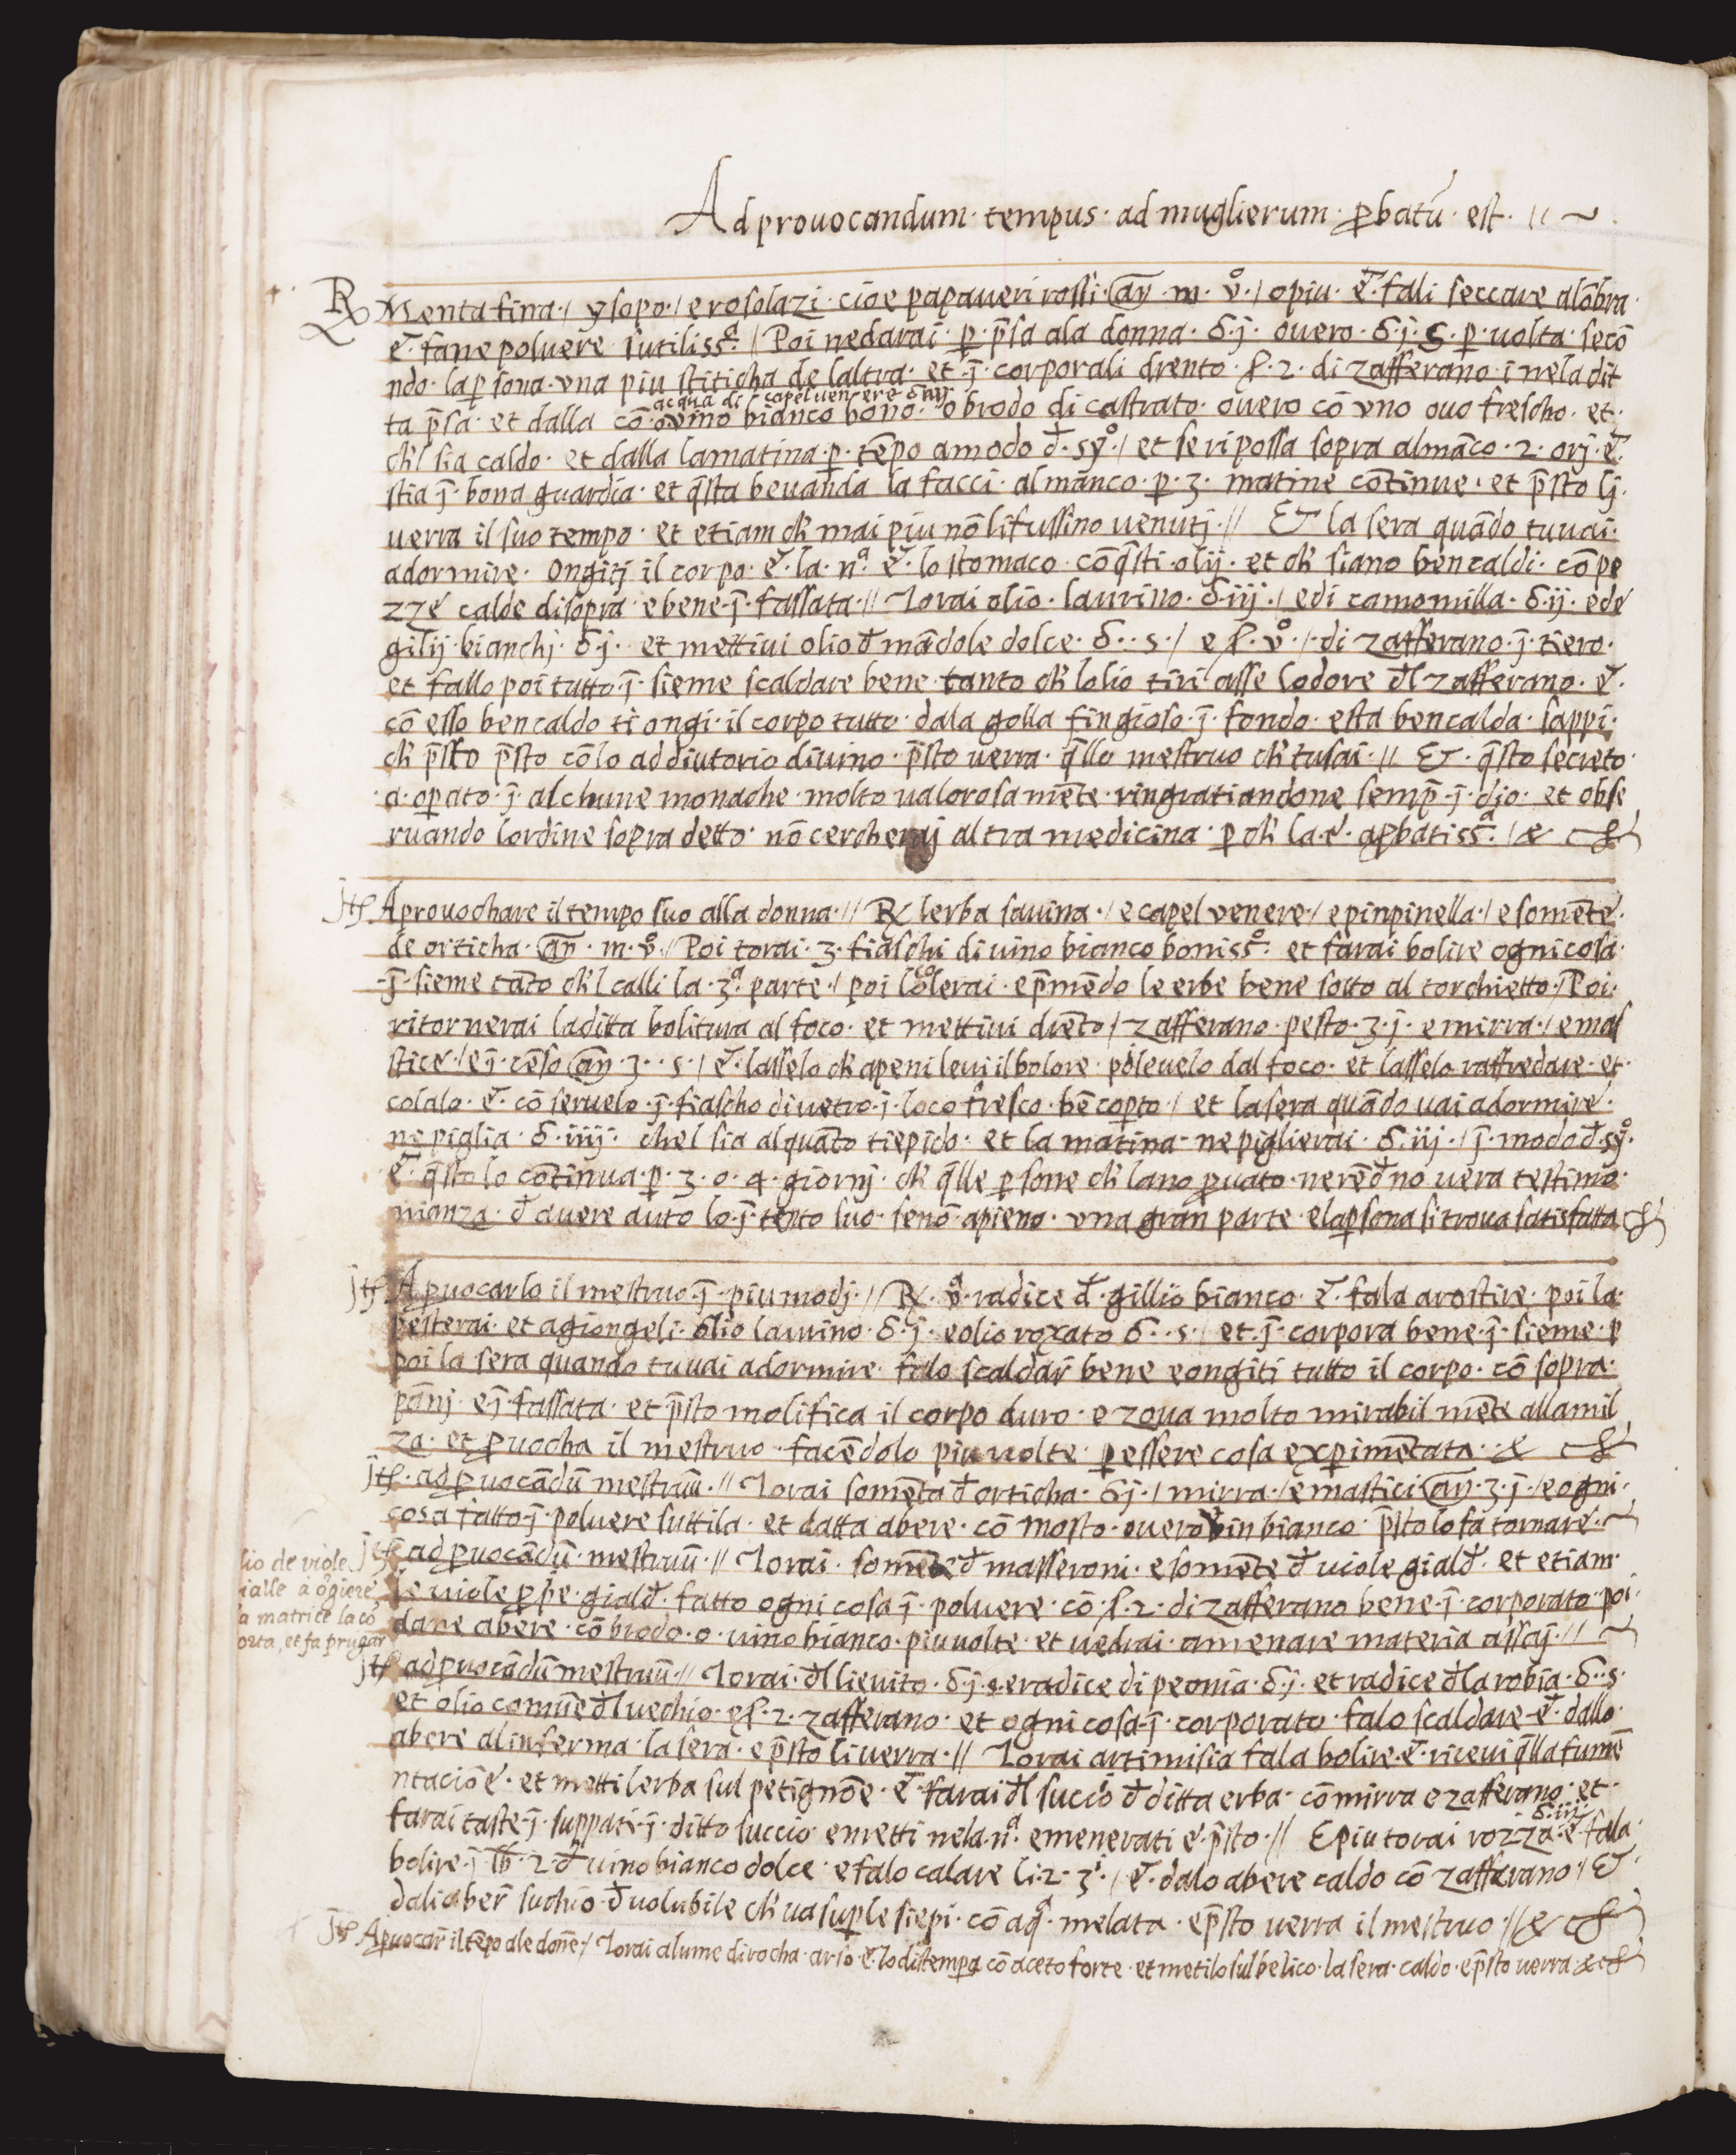 Ad prouocandum · tempus · ad muglierum · ꝑbatū · est · // ~
℞ Menta fina · / ysopo · / e rosolazi · cioe papaueri rossi · añ · m · v̊ · / o piu · é · fali seccare a lōbra ·
é · fane poluere sutiliss.ª // Poi nedarai · ꝑ · p̄sa ala donna · δ · j · ouero · δ · j · s · ꝑ · uolta · secō
ndo · la ꝑsona · vna piu stiticha de laltra · et · j̄ · corporali drento · ſ · 2 · di zafferano · i nela dit
acqua di capel uenere δ iiij
ta p̄sa · et dalla cō · o vino bianco bono · o brodo di castrato · ouero cō vno ouo frescho · et ·
ch̄l sia caldo · et dalla la matina · ꝑ · tēpo a modo đ · sẙ · / et se ripossa sopra almāco · 2 · orj · é
stia j̄ · bona guardia · et q̄sta beuanda la facci · al manco · ꝑ · 3 · matine cōtinue · et p̄sto lj
uerra il suo tempo · et etiam ch̄ mai piu nō li fussino uenutj · // Et la sera quādo tu uai ·
a dormire · ongitj il corpo · é · la · n.ª é · lo stomaco · cō q̄sti · olij · et ch̄ siano ben caldi · cō pe
zze calde di sopra · e bene · j̄ · fassata · // Torai olio · laurino · δ · iij · / e di camomilla · δ · ij · e de
gilij · bianchj · δ · j · et mettiui olio đ mādole dolce · δ · · s · / e ſ · v̊ · / · di zafferano · j̄ · tiero ·
et fallo poi tutto · j̄ · sieme scaldare bene · tanto ch̄ lolio tiri asse lodore đl zafferano · é ·
cō esso ben caldo ti ongi · il corpo tutto · dala golla fin gioso · j̄ · fondo · e sta ben calda · sappi ·
ch̄ p̄sto p̄sto cō lo addiutorio diuino · p̄sto uerra · q̄llo mestruo ch̄ tu sai · // Et · q̄sto secreto ·
a · oꝑato · j̄ · alchune monache · molto ualorosamēte · ringratiandone semp̄ · j̄ · djo · et obse
ruando lordine sopra detto · nō cercheraj altra medicina · ꝑ ch̄ la é · aꝓbatiss.ª / &
Itē A prouochare il tempo suo alla donna · // ℞ lerba sauina · / e capel venere · / e pinpinella · / e somēte ·
de orticha · añ · m · v̊ · / Poi torai · 3 · fiaschi di uino bianco boniss.º et farai bolire ogni cosa ·
j̄ · sieme tāto ch̄l calli la · 3.ª parte · / poi lo colerai · ep̄mēdo le erbe bene sotto al torchietto · / Poi ·
ritornerai la ditta bolitura al foco · et mettiui drēto / zafferano · pesto · 3 · j · e mirra · / e mas
tice · / e j̄ · cēso añ 3 · · s · / é · lasselo ch̄ apeni leui il bolore · poi leuelo dal foco · et lasselo raffredare · et ·
colalo · é · cō seruelo · j̄ · fiascho di uetro · j̄ · loco fresco · bē coꝑto / et la sera quādo uai a dormire ·
ne piglia · δ · iiij · chel sia alquāto tiepido · et la matina · ne piglierai · δ · iij · / j̄ · modo đ · sẙ ·
é · q̄sto lo cōtinua · ꝑ · 3 · o · 4 · giornj · ch̄ q̄lle ꝑsone ch̄ lano ꝓuato · ne rēđno uera testimo ·
nianza · đ auere auto lo · j̄ · tento suo · se nō apieno · vna gran parte · e la ꝑsona si troua satisfatta
Itē A ꝓuocarlo il mestruo · j̄ · piu modj · // ℞ · v.ª radice đ · gillio bianco · é · fala arostire · poi la ·
pesterai · et agiongeli · olio laurino · δ · j · e olio roxato δ · · s · / et · j̄ · corpora bene · j̄ · sieme · ꝑ
poi la sera quando tu uai a dormire · falo scaldar̄ bene e ongiti tutto il corpo · cō sopra ·
pānj · e j̄ · fassata · et p̄sto molifica il corpo duro · e zoua molto mirabilmēte alla mil
za · et ꝓuocha il mestruo · facēdolo piu uolte · ꝑ essere cosa exꝑimētata · &
Itē · ad ꝓuocādū mestruū · // Torai somēta đ orticha · δ · j · / mirra · / e mastici añ · 3 · j · / e ogni ·
cosa fatto · j̄ · poluere suttila · et datta a bere · cō mosto · ouero vin bianco · p̄sto lo fa tornare · ~
Itē ad ꝓuocādū · mestruū · // Torai · somēte đ masseroni · e somēte đ uiole gialđ · et etiam ·
le uiole ꝓpie · gialđ · fatto ogni cosa j̄ · poluere · cō · ſ · 2 · di zafferano bene · j̄ · corporato · poi ·
dane a bere · cō brodo · o · uino bianco · piu uolte · et uedrai · a menare materia assaj · // ~
lio de viole
ialle a ōgiere
a matrice la cō
orta, et fa prugar
Itē ad ꝓuocādū mestruū · // Torai · đl lieuito · δ · j · s · e radice di peonia · δ · j · et radice đ la robia · δ · · s ·
et olio comūe đl uechio · e ſ · 2 · zafferano · et ogni cosa · j̄ · corporato · falo scaldare · é · dallo ·
a bere alinferma · la sera · e p̄sto li uerra · // Torai artimisia fala bolire · é · riceui q̄lla fumē
ntacioē · et metti lerba sul petignōe · é · farai đl succio đ ditta erba · cō mirra e zafferano · et ·
farai taste · j̄ · suppate · j̄ · ditto succio · e metti nela · n.ª · e menerati é · p̄sto · // E piu torai rozza · δ · iij · é fala ·
bolire · j̄ · lb̄ · 2 · đ uino bianco dolce · e falo calare li · 2 · 3ⁱ · / é · dalo a bere caldo cō zaffarano / Et ·
dali a ber̄ suchio · đ uolubile ch̄ ua suꝑ le siepi · cō aq̄ª · melata · e p̄sto uerra il mestruo · // &
Itē A ꝓuocar̄ il tēpo ale dōne · / Torai alume di rocha · arso · é · lo distempera cō aceto forte · et metilo sul belico · la sera · caldo · e p̄sto uerra · &